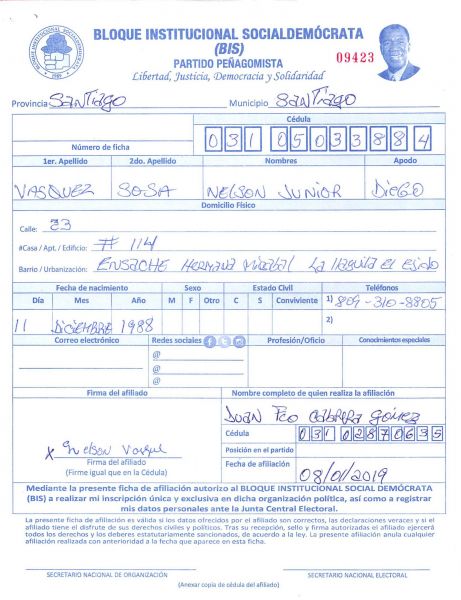 BLOQUE INSTITUCIONAL SOCIALDEMÓCRATA
(BIS)
PARTIDO PEÑAGOMISTA
09423
Libertad, Justicia, Democracia y Solidaridad
Provincia Santiago Municipio Santiago
Cédula
Número de ficha 031 0503388 4
1er. Apellido 2do. Apellido Nombres Apodo
VASQUEZ SOSA NELSON JUNIOR DIEGO
Domicilio Físico
Calle: 23
#Casa / Apt. / Edificio: # 114
Barrio / Urbanización: ENSACHE Hermana Mirabal La El Ejido
Fecha de nacimiento Sexo Estado Civil Teléfonos
Día Mes Año M F Otro C S Conviviente 1) 809-310-8805
11 Diciembre 1988 2)
Correo electrónico Redes sociales Profesión/Oficio Conocimientos especiales
@
@
@
Firma del afiliado Nombre completo de quien realiza la afiliación
Juan Fco Cabrera Gómez
Cédula 031 0287063 5
x Nelson Vasquez
Posición en el partido
Firma del afiliado
(Firme igual que en la Cédula)
Fecha de afiliación 08/01/2019
Mediante la presente ficha de afiliación autorizo al BLOQUE INSTITUCIONAL SOCIAL DEMÓCRATA
(BIS) a realizar mi inscripción única y exclusiva en dicha organización política, así como a registrar
mis datos personales ante la Junta Central Electoral.
La presente ficha de afiliación es válida si los datos ofrecidos por el afiliado son correctos, las declaraciones veraces y si el
afiliado tiene el disfrute de sus derechos civiles y políticos. Tras su recepción, sello y firma autorizados el afiliado ejercerá
todos los derechos y los deberes estatutariamente sancionados, de acuerdo a la ley. La presente afiliación anula cualquier
afiliación realizada con anterioridad a la fecha que aparece en esta ficha.
SECRETARIO NACIONAL DE ORGANIZACIÓN SECRETARIO NACIONAL ELECTORAL
(Anexar copia de cédula del afiliado)